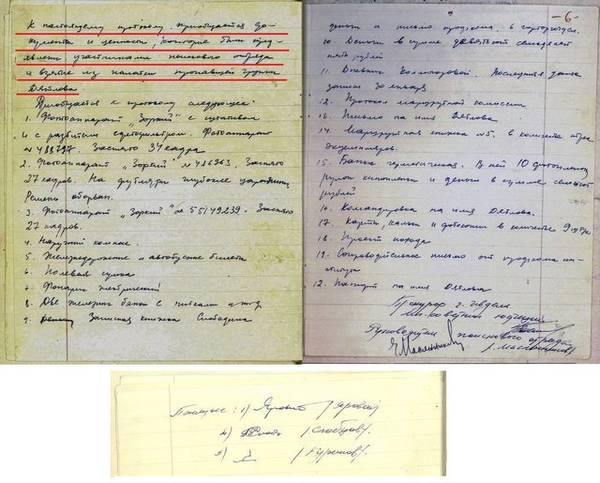 К настоящему протоколу приобщается до-
кументы и ценности, которые были пред-
явлены участниками поискового отряда
и взятые из палатки пропавшей группы
Дятлова
Приобщается к протоколу следующее:
1. Фотоаппарат "Зоркий" с штативом
и с разбитым светофильтром. Фотоаппарат
№ 488797. Заснято 34 кадра
2. Фотоаппарат "Зоркий" № 486963. Заснято
27 кадров. На футляре глубокие царапины,
Ремень оборван.
3. Фотоаппарат "Зоркий" № 55149239. Заснято
27 кадров.
4. Наручный компас.
5. Железнодорожные и автобусные билеты
6. Полевая сумка
7. Фонарик электрический
8. Две железные банки с нитками и т.д.
9. Записная книжка Слободина
-6-
деньги и письмо профкома, в горкомитет.
10. Деньги в сумме девятьсот семьдесят
пять рублей
11. Дневник Колмогоровой. Последняя дата
записи 30 января
12. Протокол маршрутной комиссии
13. Письмо на имя Дятлова.
14. Маршрутная книжка №5. в количестве трех
экземпляров.
15. Банка герметическая. В ней 10 фотопленок
рулон кинопленки и деньги в сумме семьсот
рублей
16. Командировка на имя Дятлова.
17. Карты, кальки и фотокопии в количестве 9 штук
18. Проект похода
19. Сопроводительное письмо от профкома ин-
ститута
12. Паспорт на имя Дятлова
Прокурор г. Ивделя
мл. советник юстиции
Руководитель поискового отряда
Е. Масленников
/Масленников/
Понятые: 1) Яровой /Яровой/
2) /Слобцов/.
3) /Куриков/.